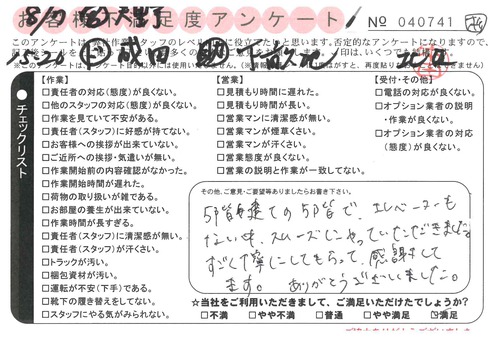 お客様満足度アンケート
No 040741
このアンケートは
チェックリスト
【作業】
□責任者の対応(態度)が良くない。
□他のスタッフの対応(態度)が良くない。
□作業を見ていて不安がある。
□責任者(スタッフ)に好感が持てない。
□お客様への挨拶が出来ていない。
□ご近所への挨拶・気遣いが無い。
□作業開始前の内容確認がなかった。
□作業開始時間が遅れた。
□荷物の取り扱いが雑である。
□お部屋の養生が出来ていない。
□作業時間が長すぎる。
□責任者(スタッフ)に清潔感が無い。
□責任者(スタッフ)が汗くさい。
□トラックが汚い。
□梱包資材が汚い。
□運転が不安(下手)である。
□靴下の履き替えをしてない。
□スタッフにやる気がみられない。
【営業】
□見積もり時間に遅れた。
□見積もり時間が長い。
□営業マンに清潔感が無い。
□営業マンが煙草くさい。
□営業マンが汗くさい。
□営業態度が良くない。
□営業の説明と作業が一致してない。
【受付・その他】
□電話の対応が良くない。
□オプション業者の説明
・作業が良くない。
□オプション業者の対応
(態度)が良くない。
その他、ご意見・ご要望等ありましたらお書き下さい。
5階建ての5階で、エレベーターも
ない中、スムーズにやっていただきました。
すごく丁寧にしてもらって、感謝して
ます。ありがとうございました。
☆当社をご利用いただきまして、ご満足いただけたでしょうか?
□不満 □やや不満 □普通 □やや満足 ☑満足